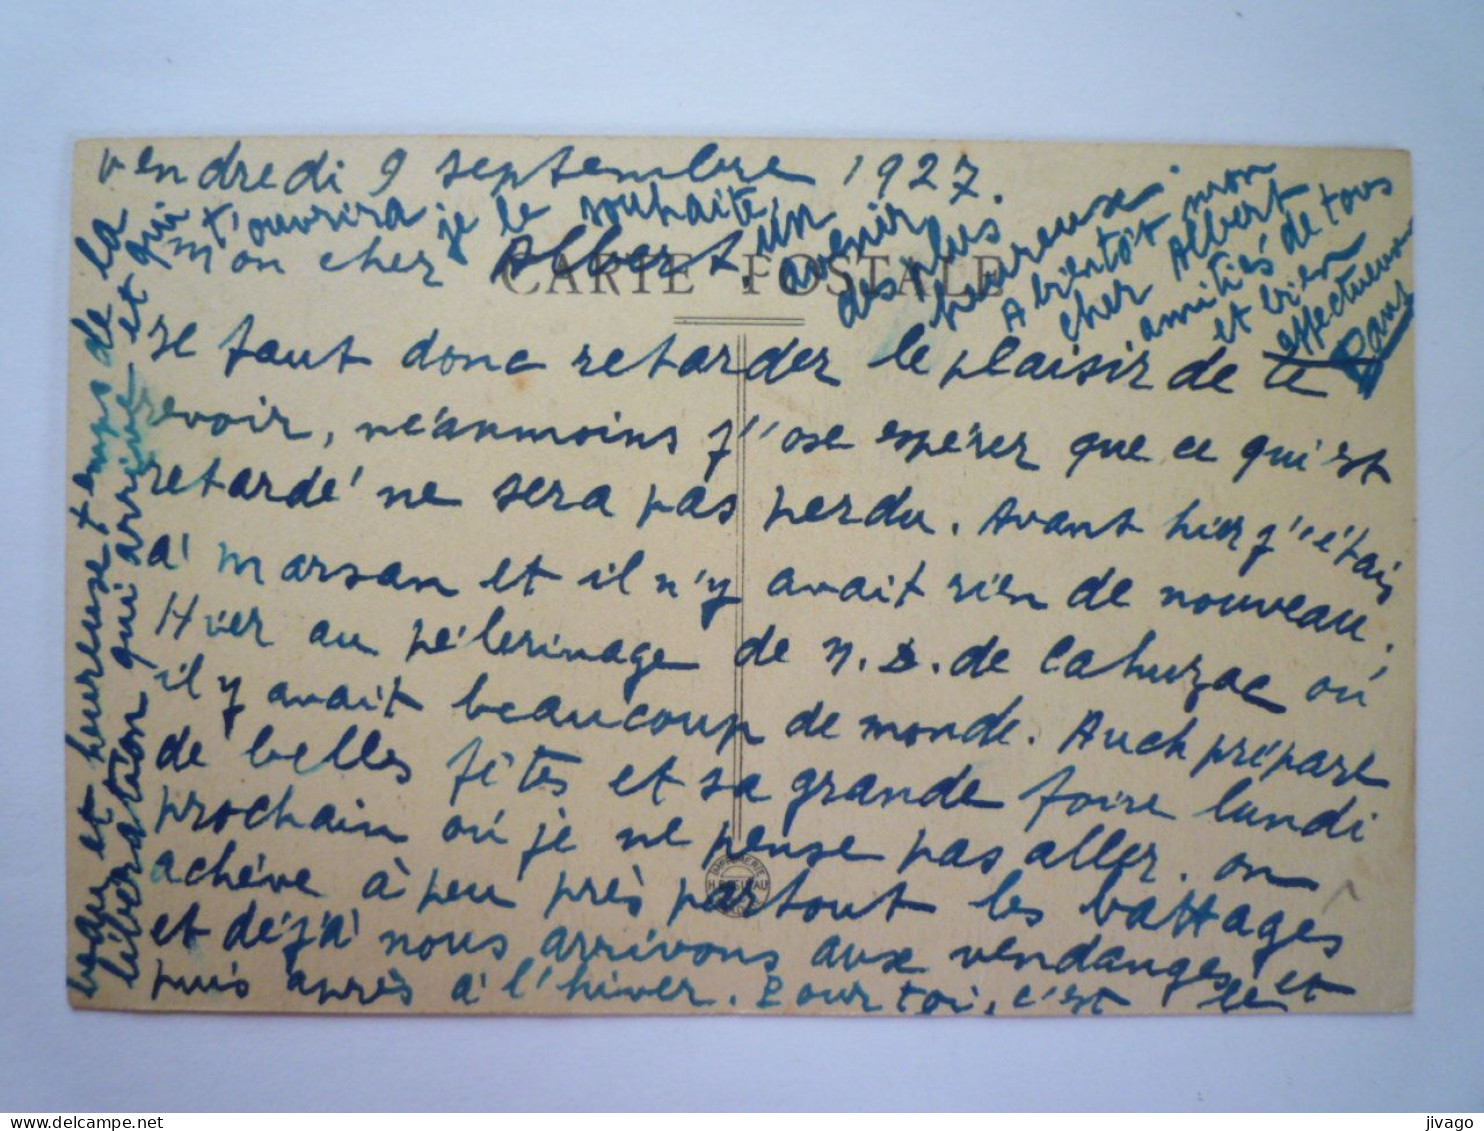 vendredi 9 septembre 1927.
mon cher Albert,
CARTE POSTALE
se faut donc retarder le plaisir de te
revoir, néanmoins j'ose espérer que ce qui est
retardé ne sera pas perdu. Avant hier j'étais
à marsan et il n'y avait rien de nouveau.
Hier au pèlerinage de N. D. de Cahuzac où
il y avait beaucoup de monde. Auch prépare
de belles fêtes et sa grande foire lundi
prochain où je ne pense pas aller. on
achève à peu près partout les battages
et déjà nous arrivons aux vendanges et
puis après à l'hiver. Pour toi, c'est le
beau et heureuse temps de la
libération qui arrive et qui
t'ouvrira je le souhaite, un avenir
des plus
heureuse.
A bientôt mon
cher Albert
amitiés de tous
et bien
effectueuse
Dans
IMPRIMERIE
jivago